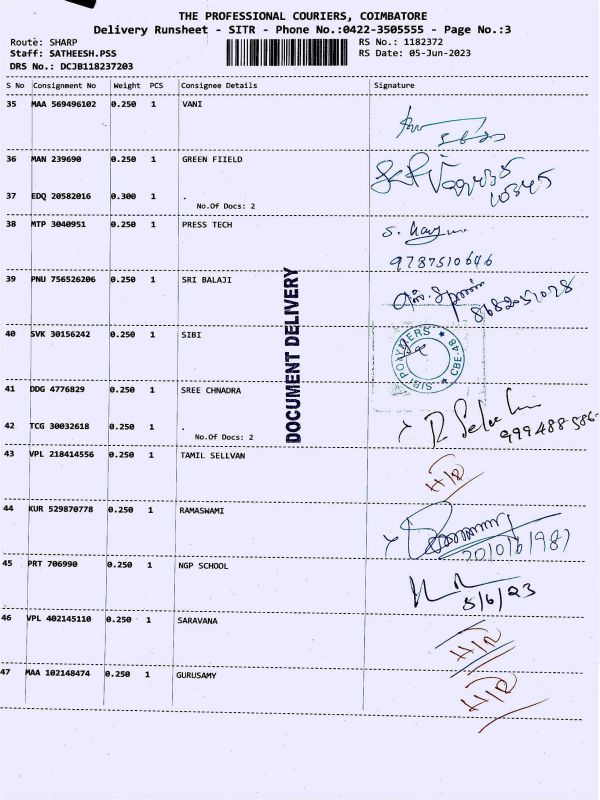 THE PROFESSIONAL COURIERS, COIMBATORE
Delivery Runsheet - SITR - Phone No.:0422-3505555 - Page No.:3
Route: SHARP RS No.: 1182372
Staff: SATHEESH.PSS RS Date: 05-Jun-2023
DRS No.: DCJB118237203
S No Consignment No Weight PCS Consignee Details Signature
35 MAA 569496102 0.250 1 VANI
36 MAN 239690 0.250 1 GREEN FIIELD
37 EDQ 20582016 0.300 1 .
No.Of Docs: 2
38 MTP 3040951 0.250 1 PRESS TECH
9787510646
39 PNU 756526206 0.250 1 SRI BALAJI
8682051028
DOCUMENT DELIVERY
40 SVK 30156242 0.250 1 SIBI
SIBI POLYMERS CBE-48
41 DDG 4776829 0.250 1 SREE CHNADRA
42 TCG 30032618 0.250 1 .
No.Of Docs: 2
43 VPL 218414556 0.250 1 TAMIL SELLVAN
H/R
44 KUR 529870778 0.250 1 RAMASWAMI
45 PRT 706990 0.250 1 NGP SCHOOL
5/6/23
46 VPL 402145110 0.250 1 SARAVANA
H/R
47 MAA 102148474 0.250 1 GURUSAMY
H/R